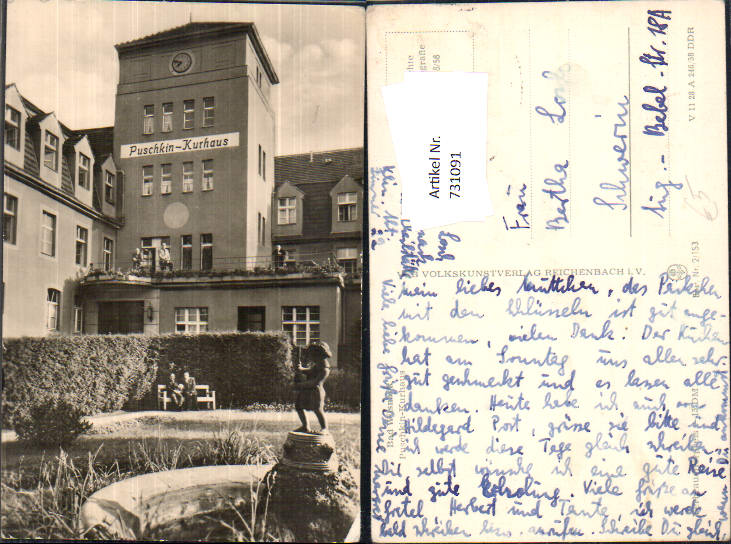 Puschkin-Kurhaus
Artikel Nr.
731091
Frau
Bertha
Schwerin
Aug.-Bebel-Str. 18A
V 11 28 A 246/58 DDR
VOLKSKUNSTVERLAG REICHENBACH i. V.
Puschkin-Kurhaus
mein liebes Muttchen, das Päckchen
mit den Schlüsseln ist gut ange-
kommen, vielen Dank! Der Kuchen
hat am Sonntag uns allen sehr
gut geschmeckt und es lassen alle
danken. Heute habe ich auch von
Hildegard Post, grüsse sie bitte und
ich werde diese Tage gleich schreiben.
Dir selbst wünsche ich eine gute Reise
und gute Erholung. Viele Grüsse an
Gretel Herbert und Tante, ich werde
bald schreiben bzw. anrufen. Schreibe Du gleich,
wenn Du ankommst
Viele liebe Grüsse